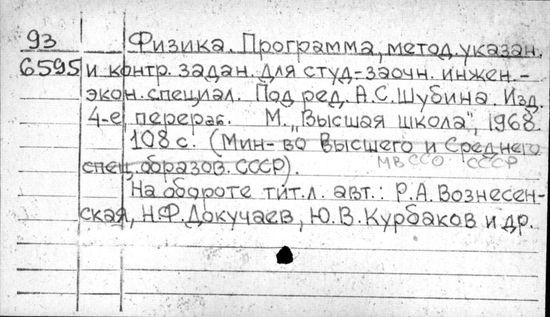 93 Физика. Программа, метод. указан.
6595 и контр. задан. для студ-заочн. инжен.-
экон. специал. Под ред. А.С.Шубина. Изд.
4-е, перераб. М. "Высшая школа", 1968.
108 с. (Мин-во Высшего и Среднего
МВССО СССР
спец. образов. СССР).
На обороте тит.л. авт.: Р.А.Вознесен-
ская, Н.Ф.Докучаев, Ю.В.Курбаков и др.